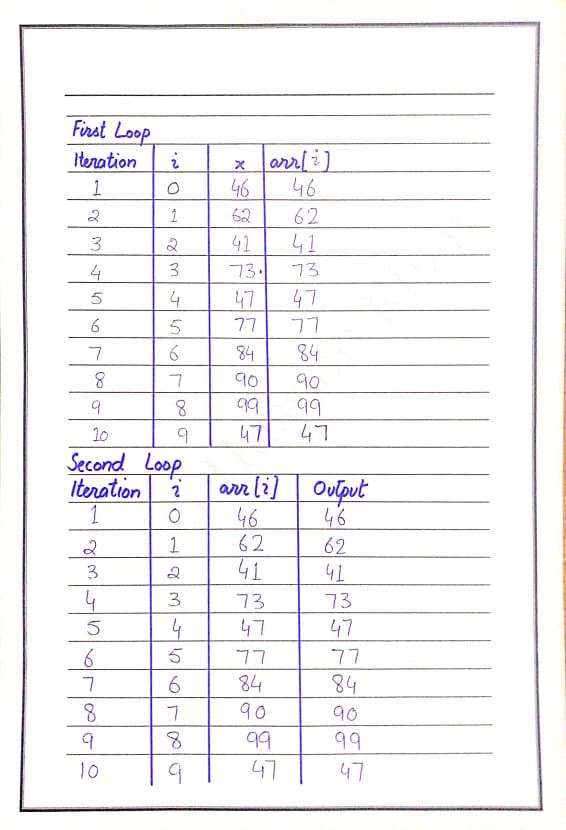 First Loop
Iteration i x arr[i]
1 0 46 46
2 1 62 62
3 2 41 41
4 3 73. 73
5 4 47 47
6 5 77 77
7 6 84 84
8 7 90 90
9 8 99 99
10 9 47 47
Second Loop
Iteration i arr[i] Output
1 0 46 46
2 1 62 62
3 2 41 41
4 3 73 73
5 4 47 47
6 5 77 77
7 6 84 84
8 7 90 90
9 8 99 99
10 9 47 47